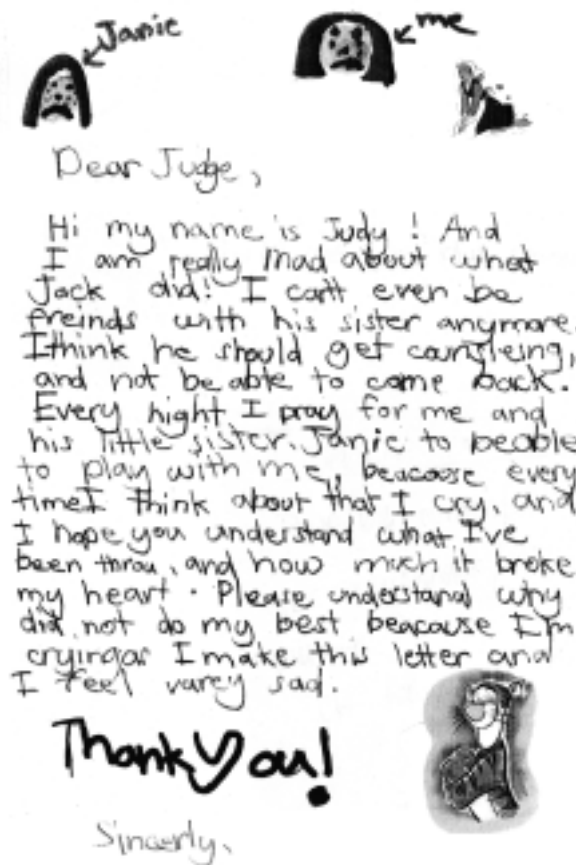 Janie
me
Dear Judge,
Hi my name is Judy! And
I am really mad about what
Jack did! I can't even be
freinds with his sister anymore.
I think he should get counsleing,
and not be able to come back.
Every night I pray for me and
his little sister, Janie to beable
to play with me, beacause every
time I think about that I cry, and
I hope you understand what I've
been throu, and how much it broke
my heart. Please understand why
did not do my best beacause I'm
cryingas I make this letter and
I feel varey sad.
Thank You!
Sincerly,